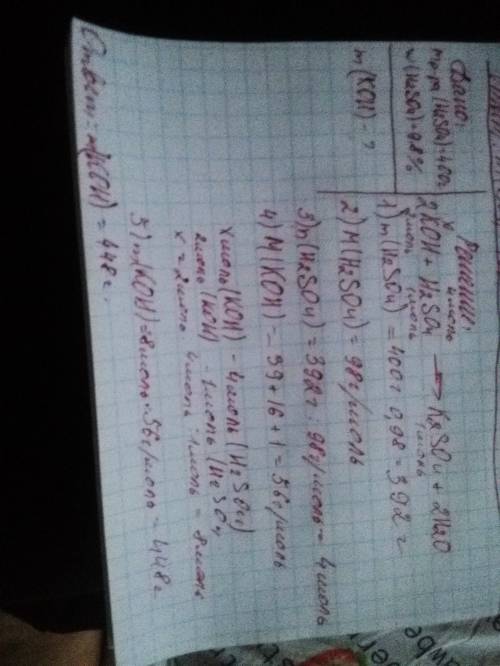 Дано:
mр-ра(H2SO4)=400г
w(H2SO4)=98%
m(KOH) - ?
Решение:
x 4моль
2KOH + H2SO4 → K2SO4 + 2H2O
2моль 1моль 1моль
1) m(H2SO4) = 400г · 0,98 = 392 г
2) M(H2SO4) = 98г/моль
3) n(H2SO4) = 392г : 98г/моль = 4моль
4) M(KOH) - 39 + 16 + 1 = 56г/моль
xмоль (KOH) - 4моль (H2SO4)
2моль (KOH) - 1моль (H2SO4
x = 2моль · 4моль : 1моль = 8моль
5) m(KOH) = 8моль · 56г/моль = 448г
Ответ: m(KOH) = 448 г.